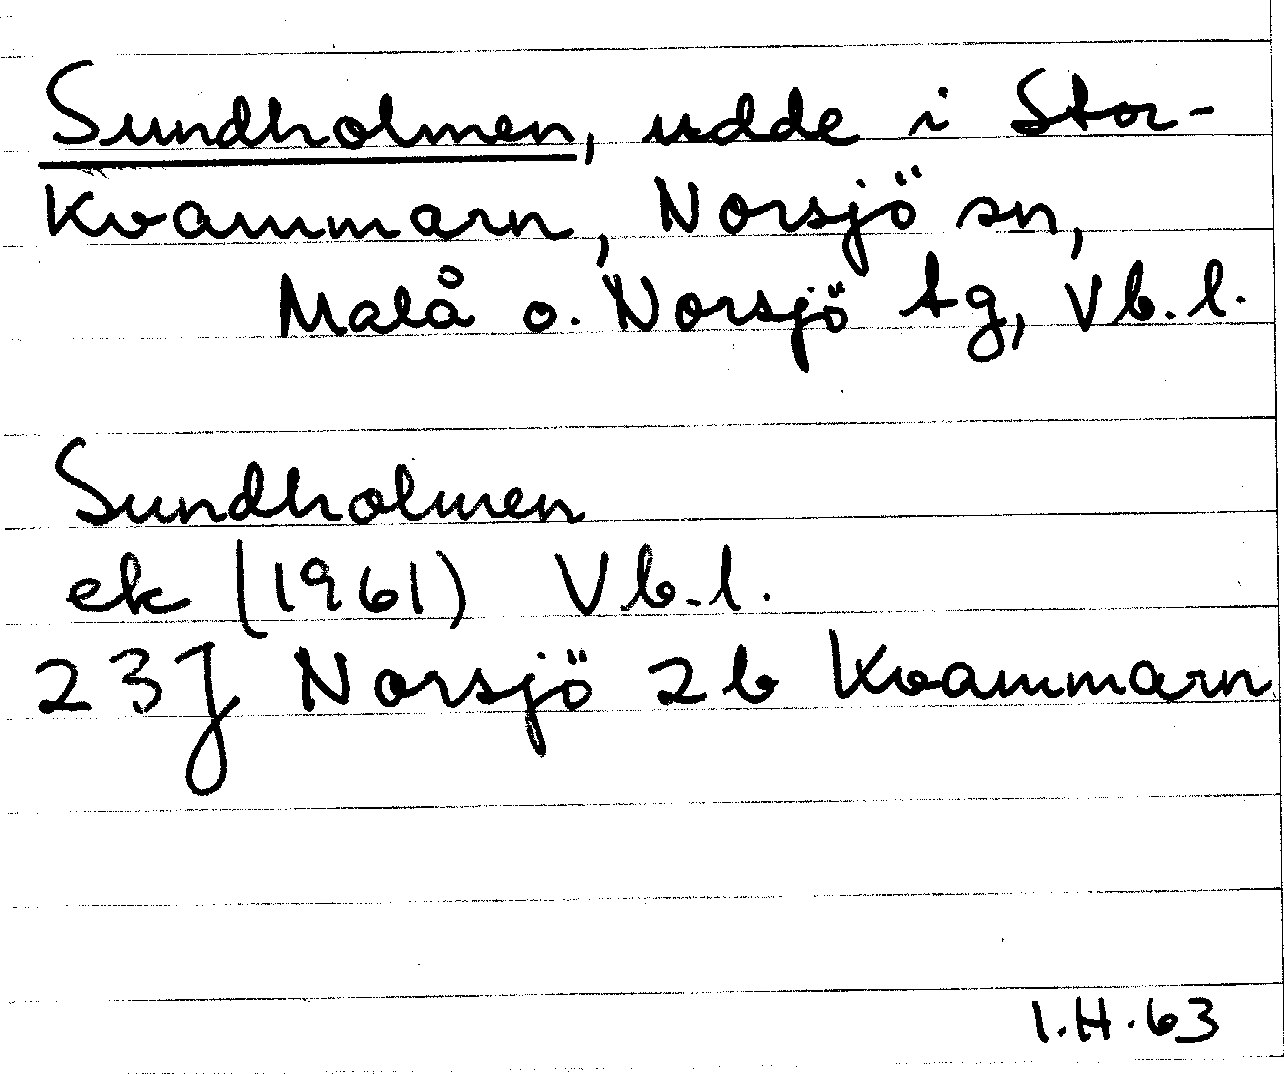 Sundholmen, udde i Stor-
Kvammarn, Norsjö sn,
Malå o. Norsjö tg, Vb. l.
Sundholmen
ek (1961) Vb. l.
23J Norsjö 2b Kvammarn
I.H. 63